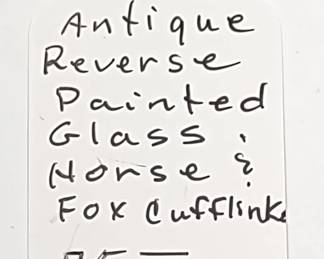 Antique
Reverse
Painted
Glass
Horse &
Fox Cufflinks